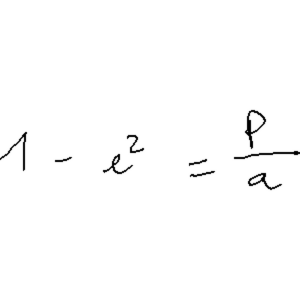 1 - e² = p/a